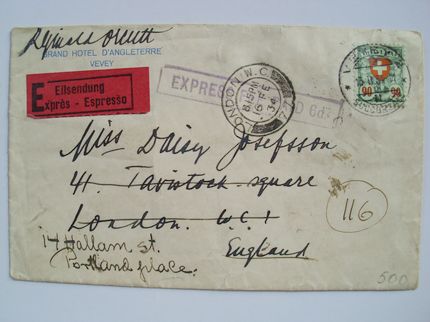 Reginald
GRAND HOTEL D'ANGLETERRE
VEVEY
E Eilsendung
Exprès - Espresso
EXPRESS
D 6d
LONDON. W.C.
8.15PM
16 FE
34
90 90
Miss Daisy Josefsson
41. Tavistock square
London. W.C.1
England
116
14 Hallam st.
Portland place.
500